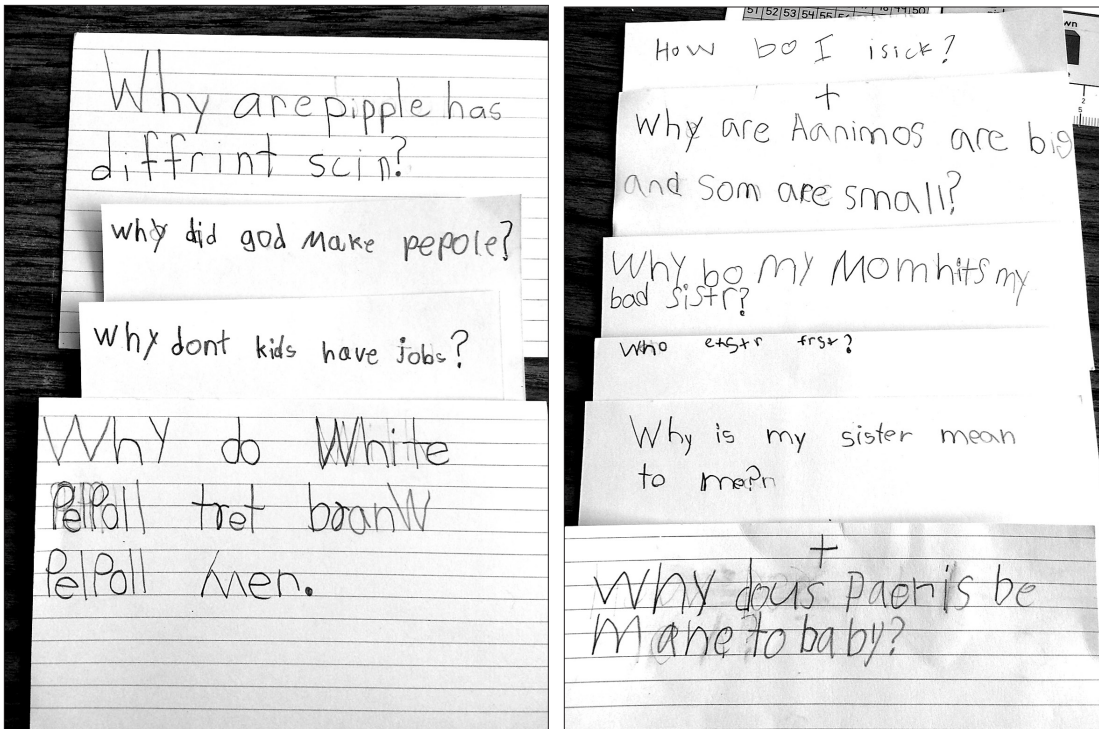 Why are pipple has
diffrint scin?
why did god make pepole?
why dont kids have jobs?
Why do White
PelPoll tret branW
PelPoll Men.
51 52 53 54 55
49 50
wn
How bo I isick?
+
Why are Aanimos are big
and som are small?
Why bo my Mom hits my
bad sistr?
Who etstr frst?
Why is my sister mean
to me?n
+
Why dous Paenis be
Mane to baby?
2
5